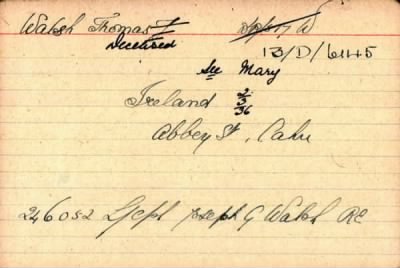 Walsh Thomas F
Deceased
13/D/6145
See Mary
Ireland 2/3/36
Abbey St, Cahir
246052 L/Cpl Joseph G Walsh RE